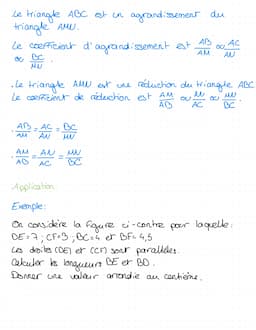 Le triangle ABC est un agrandissement du
triangle AMN.
Le coefficient d'agrandissement est AB/AM ou AC/AN
ou BC/MN
. Le triangle AMN est une réduction du triangle ABC
Le coefficient de réduction est AM/AB ou AN/AC ou MN/BC
. AB/AM = AC/AN = BC/MN
. AM/AB = AN/AC = MN/BC
Application
Exemple:
On considère la figure ci-contre pour laquelle:
DE=7; CF=3; BC=4 et BF=4,5
Les droites (DE) et (CF) sont parallèles.
Calculer les longueurs BE et BD.
Donner une valeur arrondie au centième.